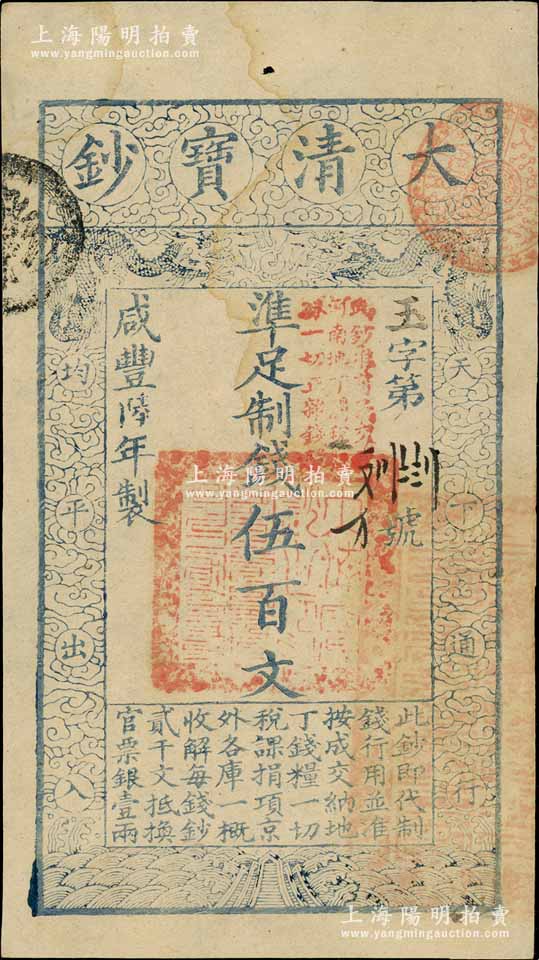 上海陽明拍賣
www.yangmingauction.com
大清寶鈔
天下通行
均平出入
玉字第
號
準足制錢伍百文
咸豐陸年製
上海陽明拍賣
www.yangmingauction.com
此鈔即代制
錢行用並准
按成交納地
丁錢糧一切
稅課捐項京
外各庫一概
收解每錢鈔
貳千文抵換
官票銀壹兩
上海陽明拍賣
www.yangmingauction.com